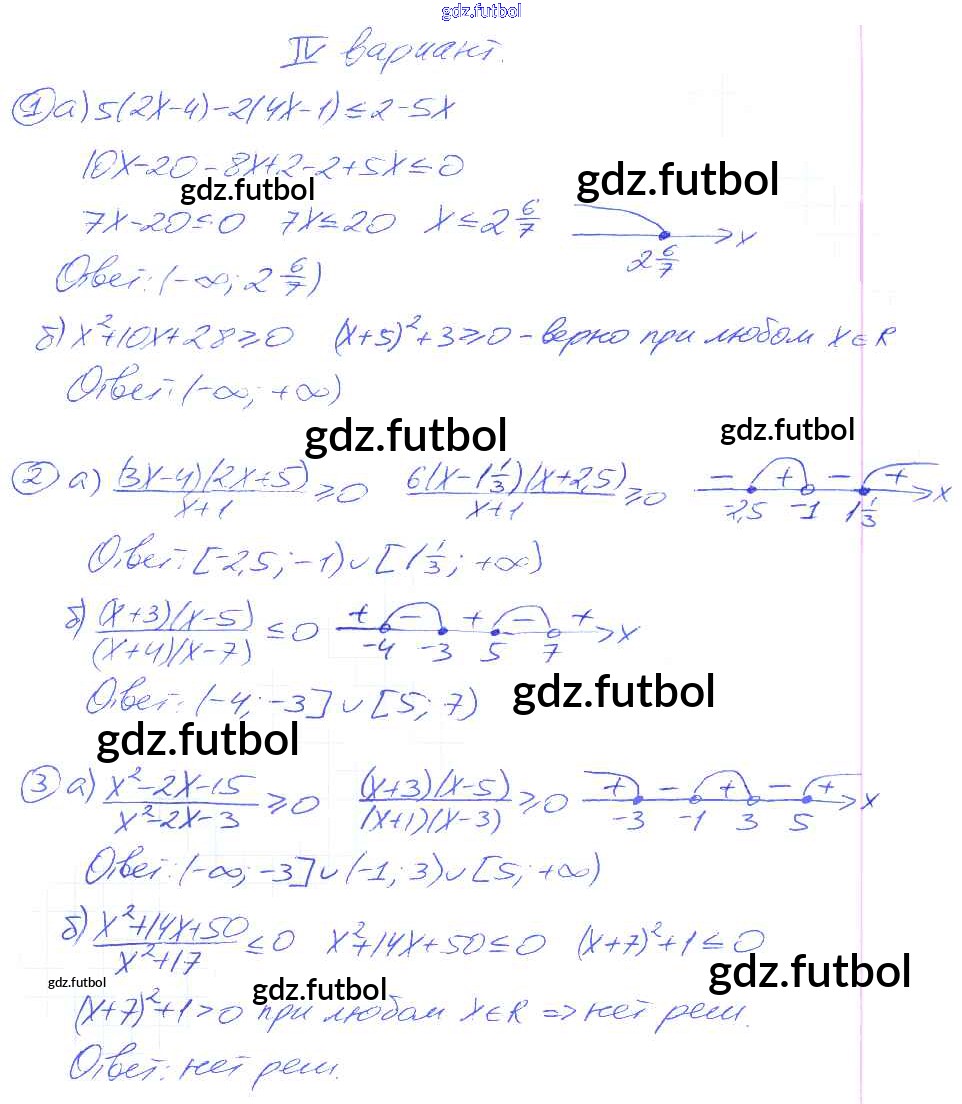 gdz.futbol
IV вариант.
① а) 5(2x-4)-2(4x-1)≤2-5x
10x-20-8x+2-2+5x≤0
gdz.futbol gdz.futbol
7x-20≤0 7x≤20 x≤2 6/7 2 6/7 x
Ответ: (-∞; 2 6/7)
б) x²+10x+28≥0 (x+5)²+3≥0 - верно при любом x∈R
Ответ: (-∞; +∞)
gdz.futbol gdz.futbol
② а) (3x-4)(2x+5)/(x+1) ≥0 6(x-1 1/3)(x+2,5)/(x+1) ≥0 - + - + -2,5 -1 1 1/3 x
Ответ: [-2,5; -1)∪[1 1/3; +∞)
б) (x+3)(x-5)/((x+4)(x-7)) ≤0 + - + - + -4 -3 5 7 x
Ответ: (-4; -3]∪[5; 7)
gdz.futbol
gdz.futbol
③ а) (x²-2x-15)/(x²-2x-3) ≥0 (x+3)(x-5)/((x+1)(x-3)) ≥0 + - + - + -3 -1 3 5 x
Ответ: (-∞; -3]∪(-1; 3)∪[5; +∞)
б) (x²+14x+50)/(x²+17) ≤0 x²+14x+50≤0 (x+7)²+1≤0
gdz.futbol gdz.futbol gdz.futbol
(x+7)²+1>0 при любом x∈R => нет реш.
Ответ: нет реш.